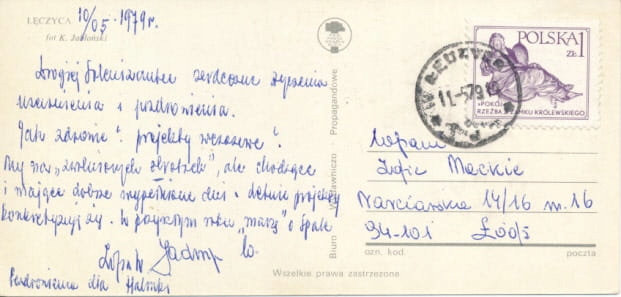 ŁĘCZYCA
fot K. Jabłoński
10/05 · 1979 r.
Drogiej Solenizantce serdeczne życzenia
i pozdrowienia.
Jak zdrowie? projekty wczasowe?
My na „zwolnionych obrotach”, ale chodzące
i mające dobrze wypełnione dni
konkretyzują się. W przyszłym roku „marzę” o Spale
Pozdrowienia dla Halinki
Biuro Wydawniczo Propagandowe
POLSKA 1
ZŁ
„POKÓJ”
RZEŹBA ZAMKU KRÓLEWSKIEGO
ŁĘCZYCA
11-5.79
WPani
Zofia Mackie
Narciarska 14/16 m. 16
94-101 Łódź
ozn. kod. poczta
Wszelkie prawa zastrzeżone